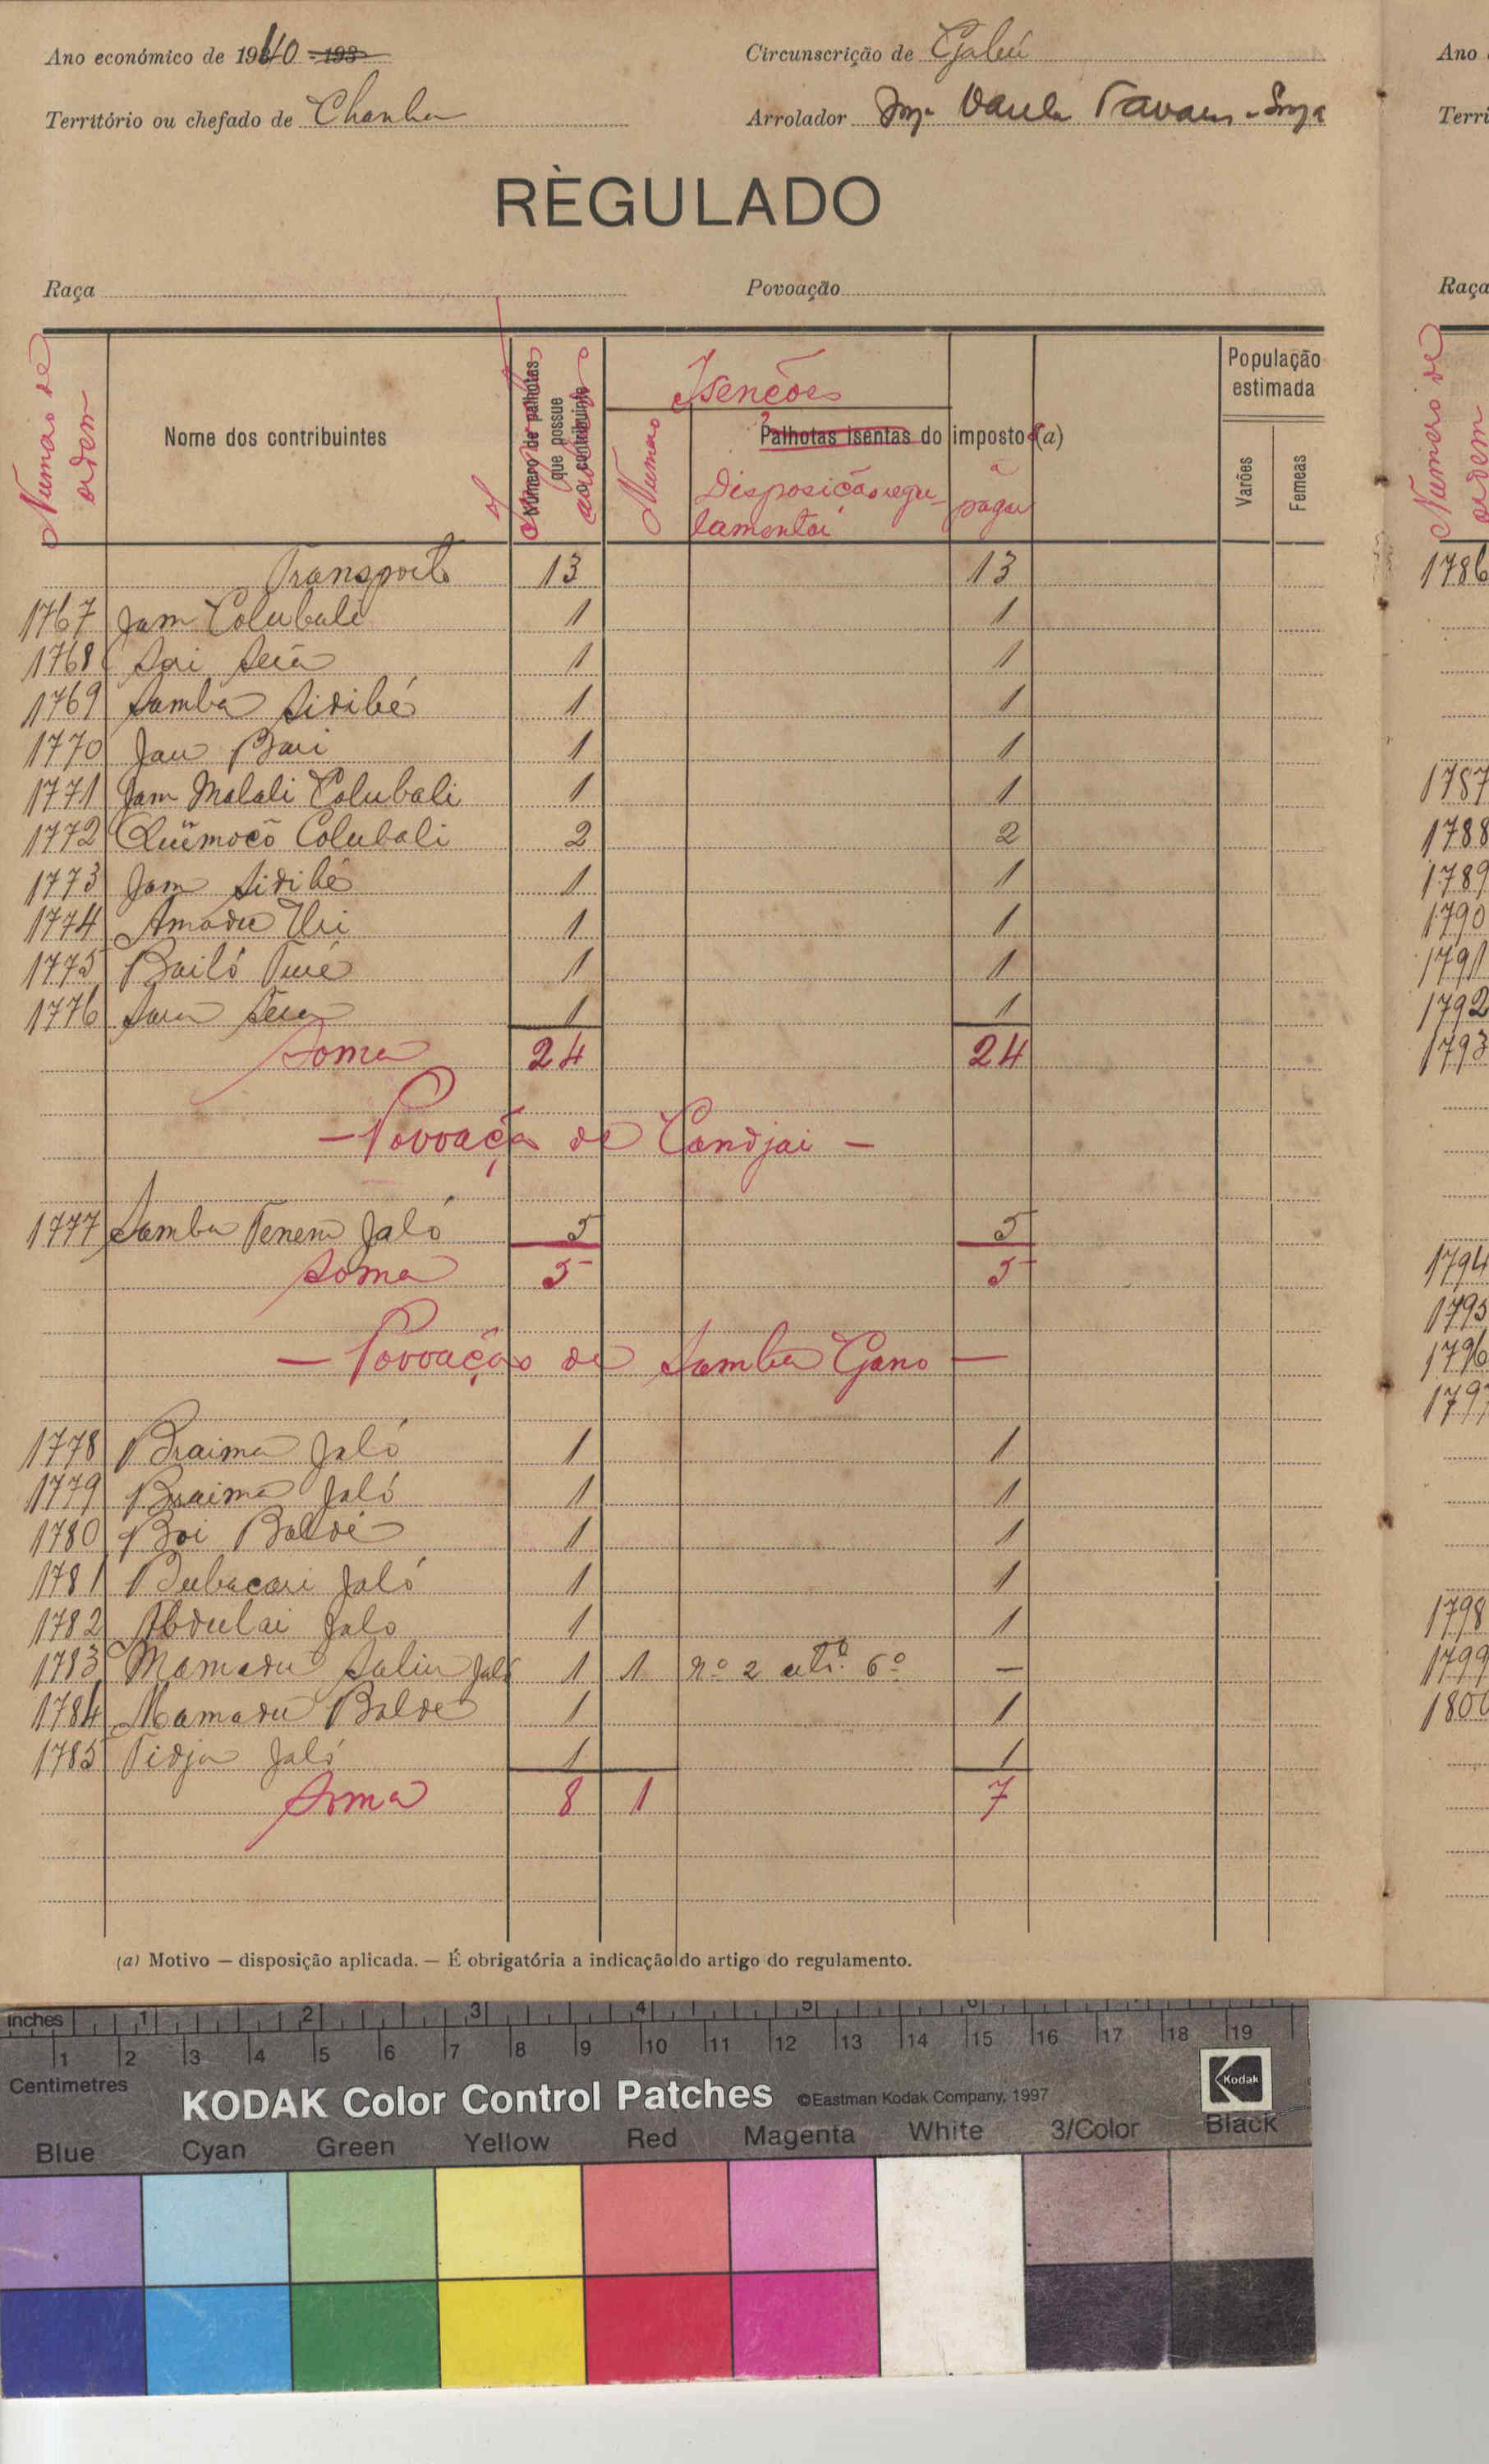 Ano económico de 1940 - 193
Circunscrição de Gabú
Território ou chefado de Chanha
Arrolador Tavares
RÈGULADO
Raça
Povoação
Numero de ordem
Nome dos contribuintes
Número de palhotas que possue o contribuinte
Isenções
Numero
Palhotas isentas do imposto (a)
Disposição regulamentar
a pagar
População estimada
Varões
Femeas
Transporte 13 13
1767 Jam Colubali 1 1
1768 Sai 1 1
1769 Samba Sidibé 1 1
1770 Jau Bari 1 1
1771 Jam Malali Colubali 1 1
1772 Quimocô Colubali 2 2
1773 Jam Sidibê 1 1
1774 Amadu Uri 1 1
1775 Bailó Turé 1 1
1776 1 1
Soma 24 24
— Povoação de Candjai —
1777 Samba Tenem Jaló 5 5
Soma 5 5
— Povoação de Samba Gano —
1778 Braima Jaló 1 1
1779 Braima Jaló 1 1
1780 Boi Baldé 1 1
1781 Bubacari Jaló 1 1
1782 Abdulai Jalo 1 1
1783 Mamadu Saliu Jaló 1 1 nº 2 artº. 6º —
1784 Mamadu Balde 1 1
1785 Tidja Jaló 1 1
Soma 8 1 7
(a) Motivo — disposição aplicada. — É obrigatória a indicação do artigo do regulamento.
Ano
Terri
Raça
Numero de ordem
1786
1787
1788
1789
1790
1791
1792
1793
1794
1795
1796
1797
1798
1799
1800
inches 1 2 3 4 5 6
1 2 3 4 5 6 7 8 9 10 11 12 13 14 15 16 17 18 19
Centimetres
KODAK Color Control Patches ©Eastman Kodak Company, 1997 Kodak
Blue Cyan Green Yellow Red Magenta White 3/Color Black